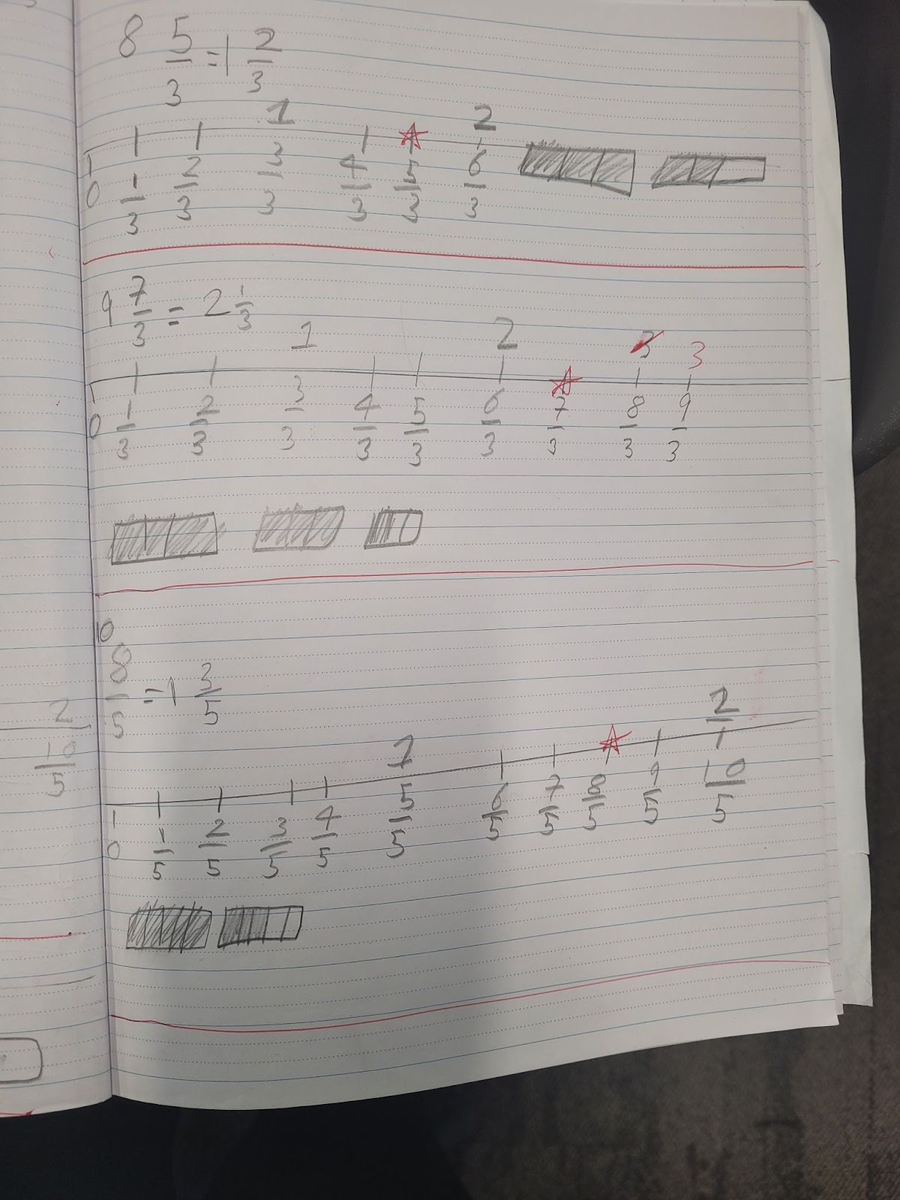 8 5/3 = 1 2/3
1 2
0 1/3 2/3 3/3 4/3 5/3 6/3
9 7/3 = 2 1/3
1 2 3 3
0 1/3 2/3 3/3 4/3 5/3 6/3 7/3 8/3 9/3
10
8/5 = 1 3/5
2
10/5
1 2
0 1/5 2/5 3/5 4/5 5/5 6/5 7/5 8/5 9/5 10/5